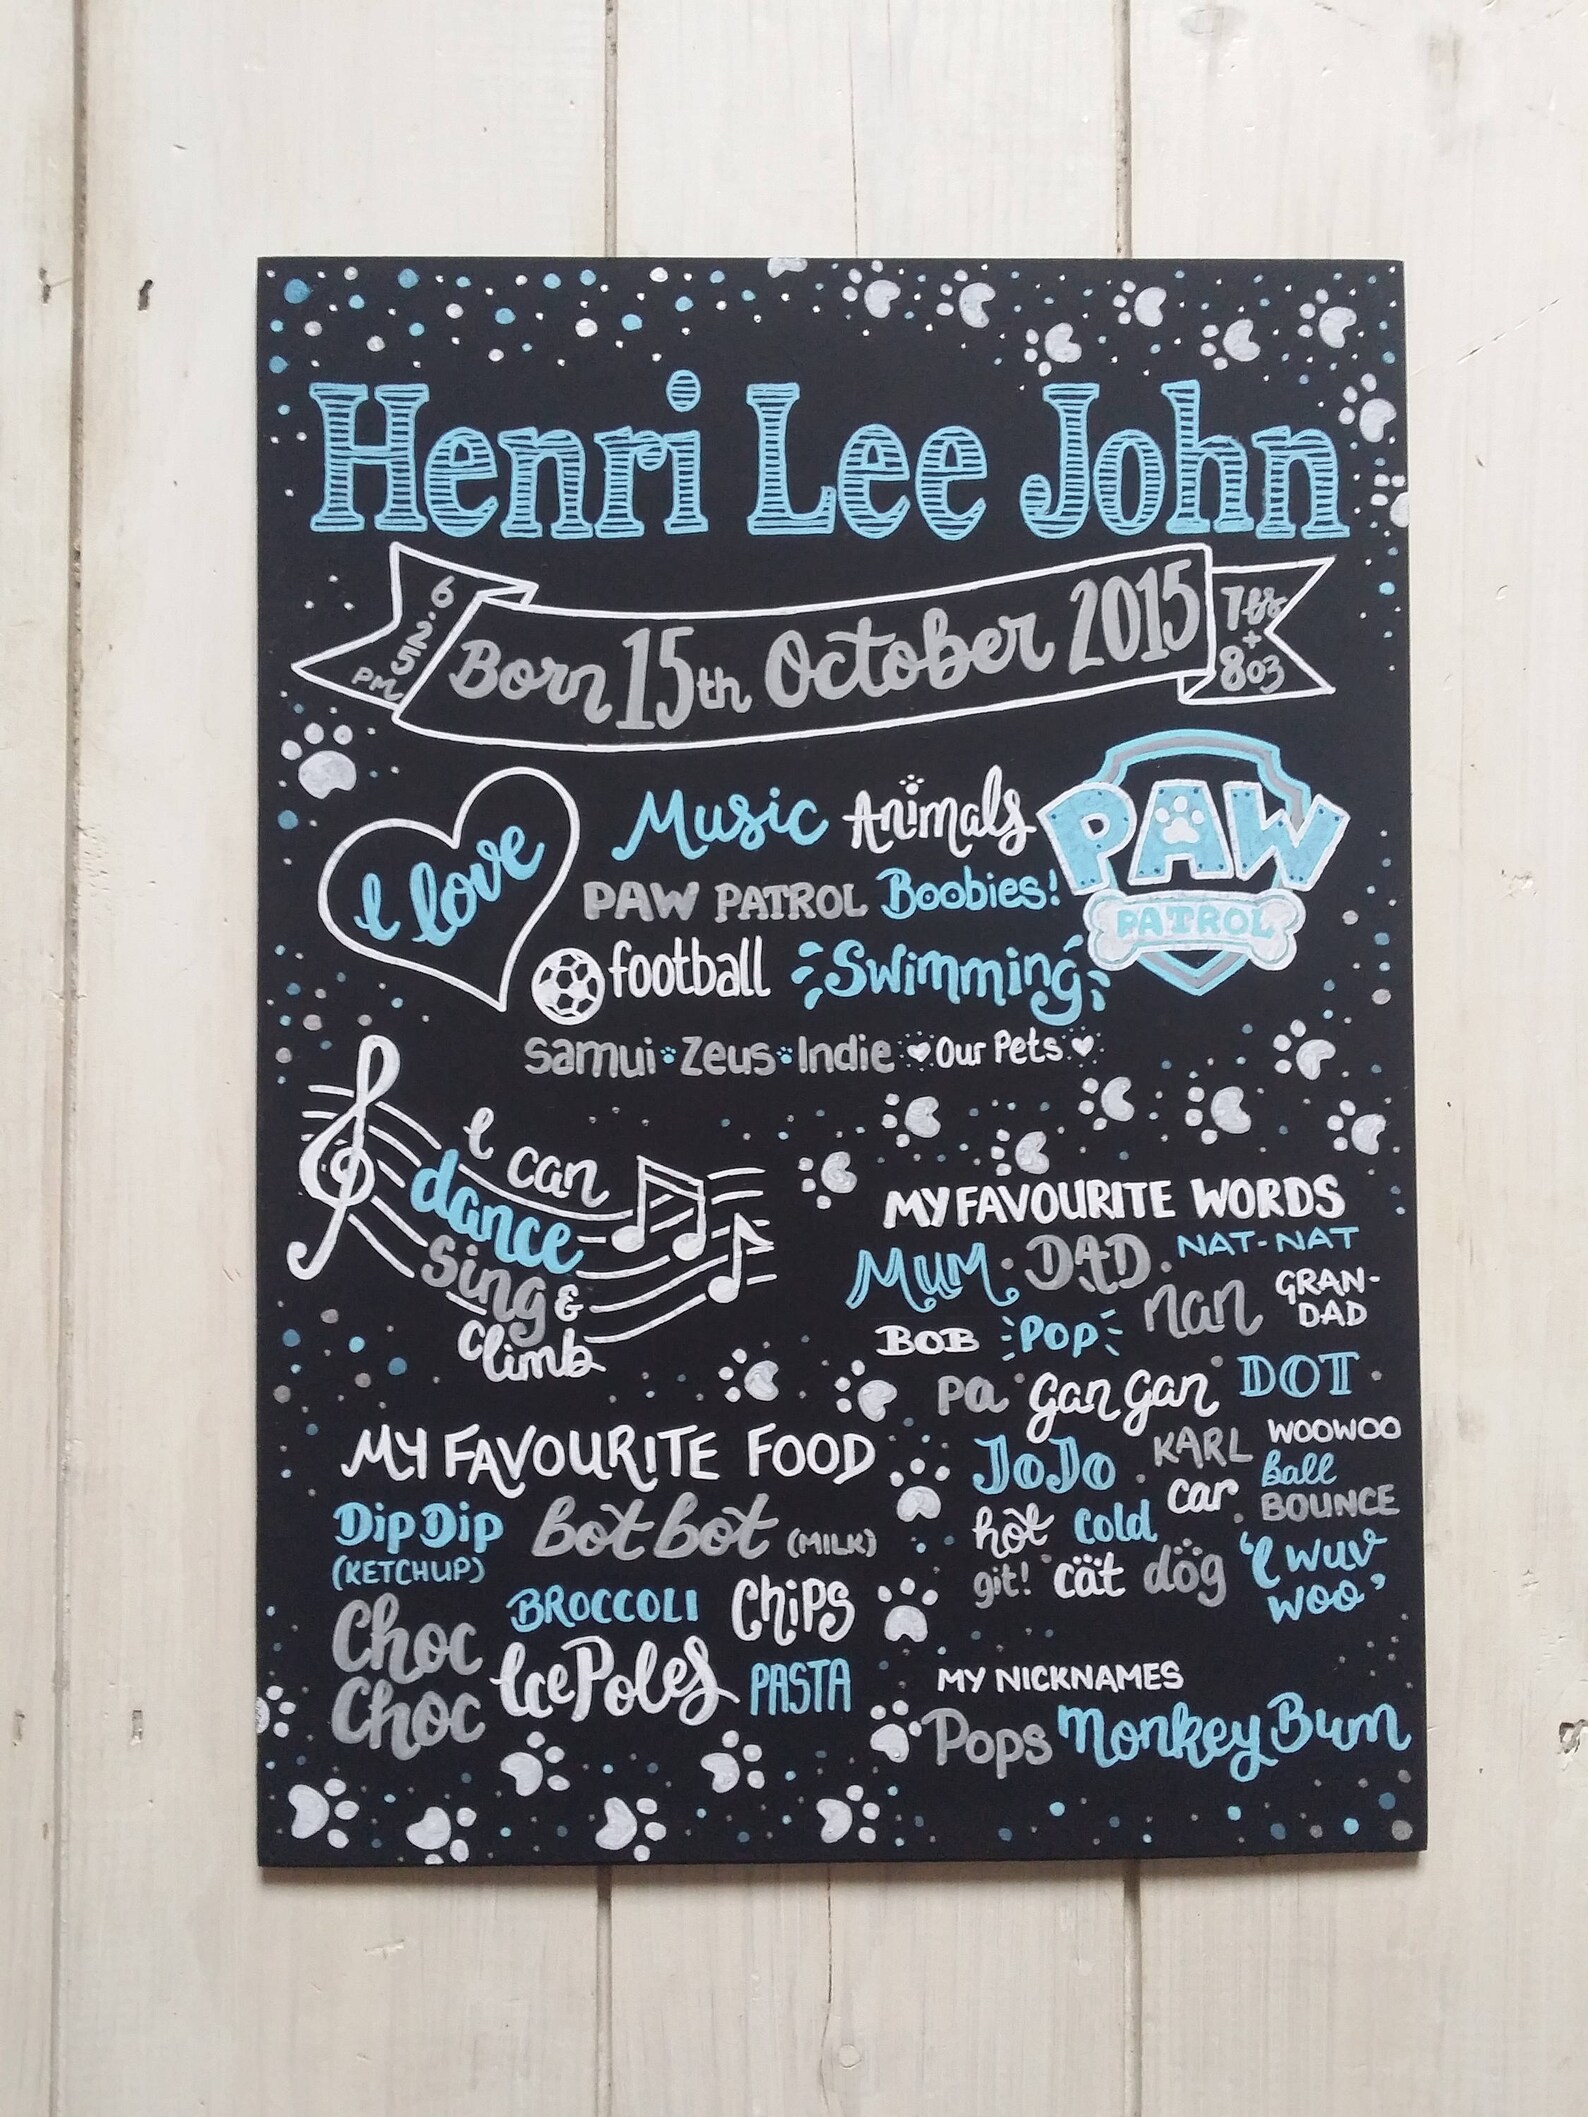 Henri Lee John
6.25 PM
Born 15th October 2015
7lbs + 8oz
I love
Music Animals
PAW PATROL Boobies!
PAW
PATROL
football Swimming
Samui Zeus Indie Our Pets
I can
dance
sing &
climb
MY FAVOURITE WORDS
MUM. DAD. NAT-NAT
nan GRAN-
DAD
BOB POP
Pa Gan Gan DOT
JoJo. KARL WOOWOO
car. Ball
BOUNCE
hot cold
git! cat dog 'I wuv
woo'
MY FAVOURITE FOOD
Dip Dip bot bot (MILK)
(KETCHUP)
BROCCOLI Chips
Choc
Choc Ice Poles PASTA
MY NICKNAMES
Pops Monkey Bum